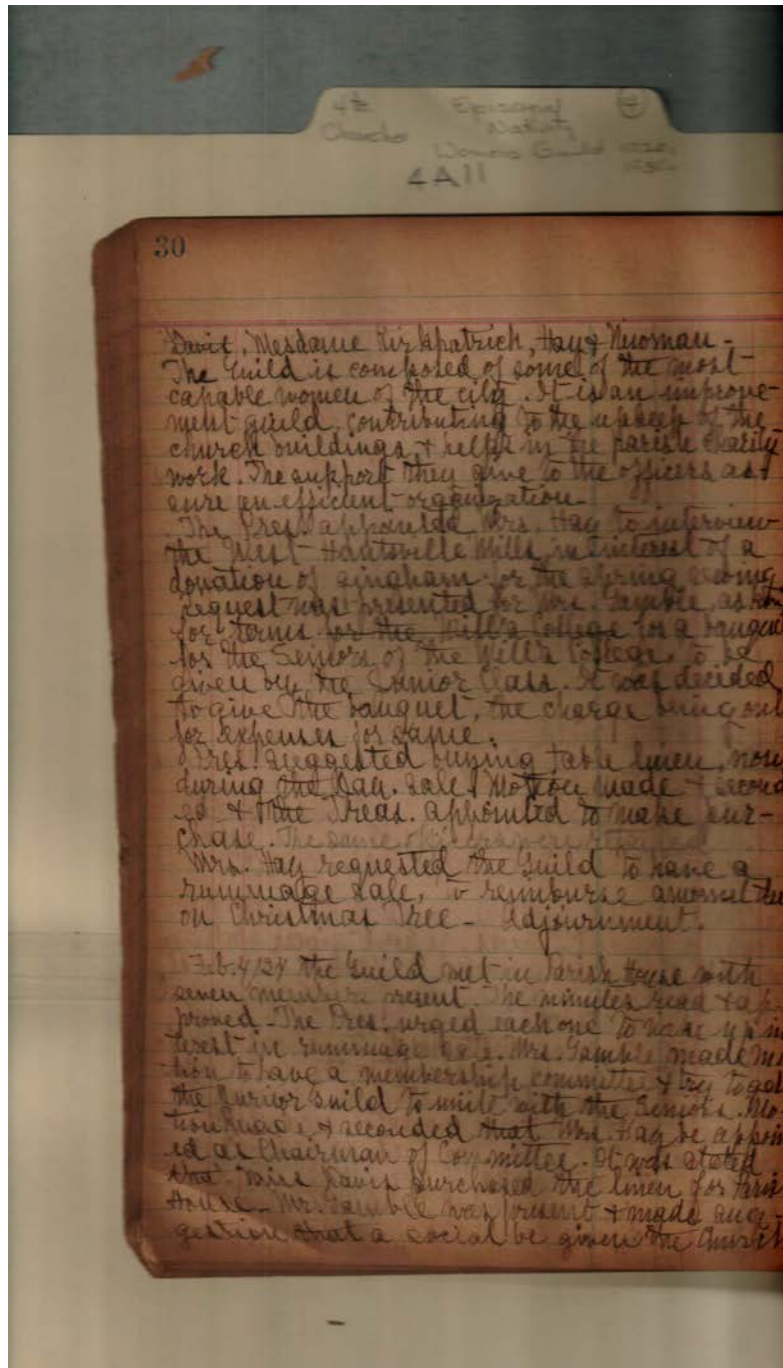 4th Episcopal 4
Church Nativity
Womens Guild
4A11
30
Davis, Mesdame Kirkpatrick, Hay & Newman -
The Guild is composed of some of the most
capable women of the city. It is an improve-
ment guild, contributing to the upkeep of the
church buildings, & helps in the parish charity
work. The support they give to the officers as+
sure an efficient organization -
The Pres. appointed Mrs. Hay to interview
the West Huntsville Mills, in interest of a
donation of gingham for the spring sewing
request was presented for Mrs. Gamble, ask
for terms for the Will's College for a banquet
for the Seniors of the Will's College, to be
given by the Junior Class. It was decided
to give the banquet, the charge being on
for expenses for same.
Pres. suggested buying table linen, now
during the Jan. Sale & Motion made & second
ed & the Treas. appointed to make pur-
chase. The same officers were retained
Mrs. Hay requested the Guild to have a
rummage sale, to reimburse amount
on Christmas Tree - Adjournment.
Feb. 4/24 the Guild met in Parish House with
seven members present. The minutes read & ap-
proved - The Pres. urged each one to in
terest in rummage sale. Mrs. Gamble made mo
tion to have a membership committee & try to get
the Junior Guild to unite with the Seniors. Mo
tion made, & seconded that Mrs. Hay be appoin
ed as Chairman of Committee. It was stated
that Miss Davis purchased the linen for Paris
House - Mr. Gamble was present & made sug-
gestion that a social be given the Church